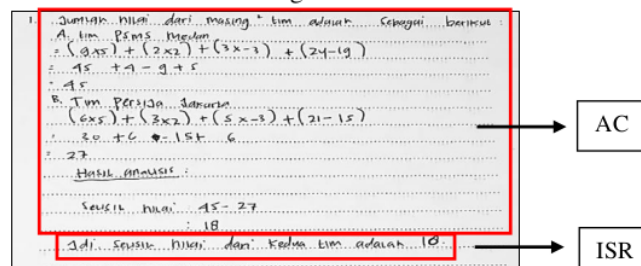 1. Jumlah nilai dari masing² tim adalah sebagai berikut :
A. tim PSMS Medan
= (9x5) + (2x2) + (3x-3) + (24-19)
= 45 + 4 - 9 + 5
= 45
B. Tim Persija Jakarta
(6x5) + (3x2) + (5x-3) + (21-15)
: 30 + 6 - 15 + 6
= 27
Hasil analisis :
Selisih nilai : 45 - 27
: 18
Jadi selisih nilai dari kedua tim adalah 18.
AC
ISR